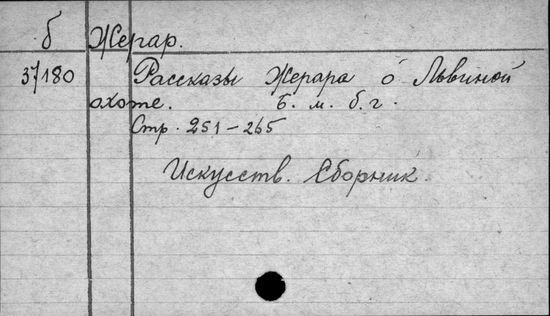 б Жерар.
37/180 Рассказы Жерара о Львиной
охоте. Б. м. б. г.
Стр. 251-265
Искусств. Сборник.